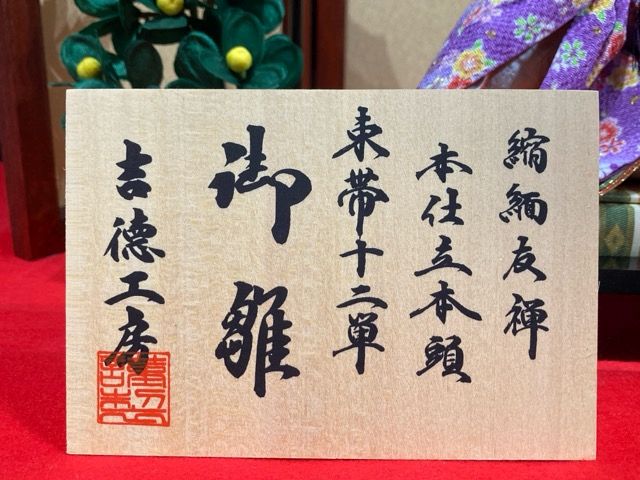 縮緬友禅
本仕立本頭
束帯十二単
御雛
吉德工房